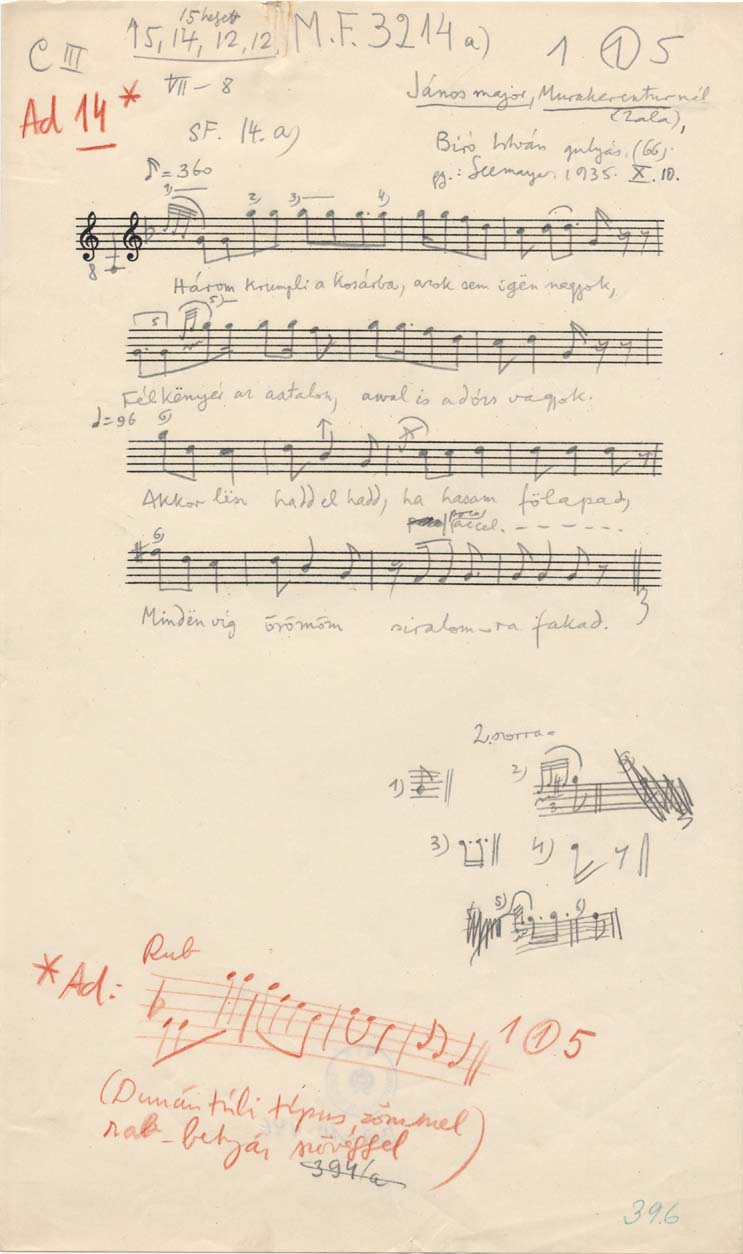 15 helyett
C III
↑5, 14, 12, 12, M.F. 3214 a) 1 ① 5
VII – 8
Ad 14 *
SF. 14. a)
János major, Murakeresztúrnál
(Zala),
Biró István gulyás, (66).
gy.: Seemayer, 1935. X. 10.
♪ = 360
1) 2) 3) 4)
8
Három krumpli a kosárba, azok sem igën nagyok,
5 5)
Félkënyér az asztalon, avval is adós vagyok.
♩ = 96 6)
Akkor lësz hadd el hadd, ha hasam fölapad,
poco accel. – – – – – –
6)
Mindën víg örömöm siralom-ra fakad.
2. sorra =
1) 2)
3
3) 4)
5) 6)
Rub
* Ad: 1 ① 5
(Dunántúli típus, zömmel
rab-betyár szöveggel)
394/a
396